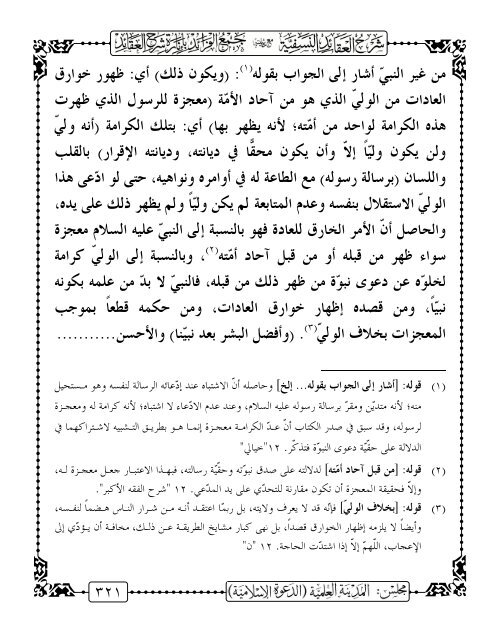 شرح العقائد النسفية مع حاشيته جمع الفرائد بإنارة شرح العقائد
من غير النبيّ أشار إلى الجواب بقوله(١): (ويكون ذلك) أي: ظهور خوارق
العادات من الوليّ الذي هو من آحاد الأمّة (معجزة للرسول الذي ظهرت
هذه الكرامة لواحد من أمّته؛ لأنه يظهر بها) أي: بتلك الكرامة (أنه وليّ
ولن يكون وليًا إلاّ وأن يكون محقًّا في ديانته، وديانته الإقرار) بالقلب
واللسان (برسالة رسوله) مع الطاعة له في أوامره ونواهيه، حتى لو ادّعى هذا
الوليّ الاستقلال بنفسه وعدم المتابعة لم يكن وليًا ولم يظهر ذلك على يده،
والحاصل أنّ الأمر الخارق للعادة فهو بالنسبة إلى النبيّ عليه السلام معجزة
سواء ظهر من قبله أو من قبل آحاد أمّته(٢)، وبالنسبة إلى الوليّ كرامة
لخلوّه عن دعوى نبوّة من ظهر ذلك من قبله، فالنبيّ لا بدّ من علمه بكونه
نبيًا، ومن قصده إظهار خوارق العادات، ومن حكمه قطعاً بموجب
المعجزات بخلاف الوليّ(٣). (وأفضل البشر بعد نبيّنا) والأحسن...........
(١) قوله: [أشار إلى الجواب بقوله... إلخ] وحاصله أنّ الاشتباه عند إدّعائه الرسالة لنفسه وهو مستحيل
منه؛ لأنه متديّن ومقرّ برسالة رسوله عليه السلام، وعند عدم الادّعاء لا اشتباه؛ لأنه كرامة له ومعجزة
لرسوله، وقد سبق في صدر الكتاب أنّ عدّ الكرامة معجزة إنما هو بطريق التشبيه لاشتراكهما في
الدلالة على حقّيّة دعوى النبوّة فتذكّر. ١٢"خيالي"
(٢) قوله: [من قبل آحاد أمّته] لدلالته على صدق نبوّته وحقّيّة رسالته، فبهذا الاعتبار جعل معجزة له،
وإلاّ فحقيقة المعجزة أن تكون مقارنة للتحدّي على يد المدّعي. ١٢ "شرح الفقه الأكبر".
(٣) قوله: [بخلاف الوليّ] فإنّه قد لا يعرف ولايته، بل ربّما اعتقد أنه من شرار الناس هضماً لنفسه،
وأيضاً لا يلزمه إظهار الخوارق قصداً، بل نهى كبار مشايخ الطريقة عن ذلك، مخافة أن يؤدّي إلى
الإعجاب، اللّهمّ إلاّ إذا اشتدّت الحاجة. ١٢ "ن"
مجلس: المدينة العلمية (الدعوة الإسلامية) ٣٢١